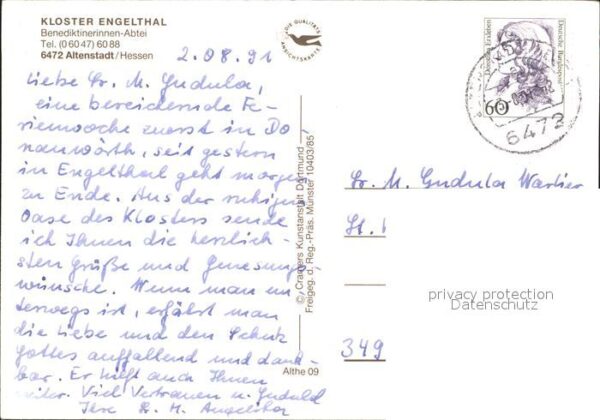 KLOSTER ENGELTHAL
Benediktinerinnen-Abtei
Tel. (0 60 47) 60 88
6472 Altenstadt/Hessen
DIE QUALITÄTS
ANSICHTSKARTE
2.08.91
Liebe Sr. M. Gudula,
eine bereichernde Fe-
rienwoche zuerst in Do
nauwörth, seit gestern
in Engelthal geht morgen
zu Ende. Aus der ruhigen
Oase des Klosters sende
ich Ihnen die herzlich-
sten Grüße und Genesungs
wünsche. Wenn man un
terwegs ist, erfährt man
die Liebe und den Schutz
Gottes auffallend und dank-
bar. Er hilft auch Ihnen
weiter. Viel Vertrauen u. Geduld
Ihre Sr. M. Angelika
© Cramers Kunstanstalt Dortmund –
Freigeg. d. Reg.-Präs. Münster 10403/85
Althe 09
Dorothea Erxleben
Deutsche Bundespost
60
6472
Sr. M. Gudula
St.
349
privacy protection
Datenschutz